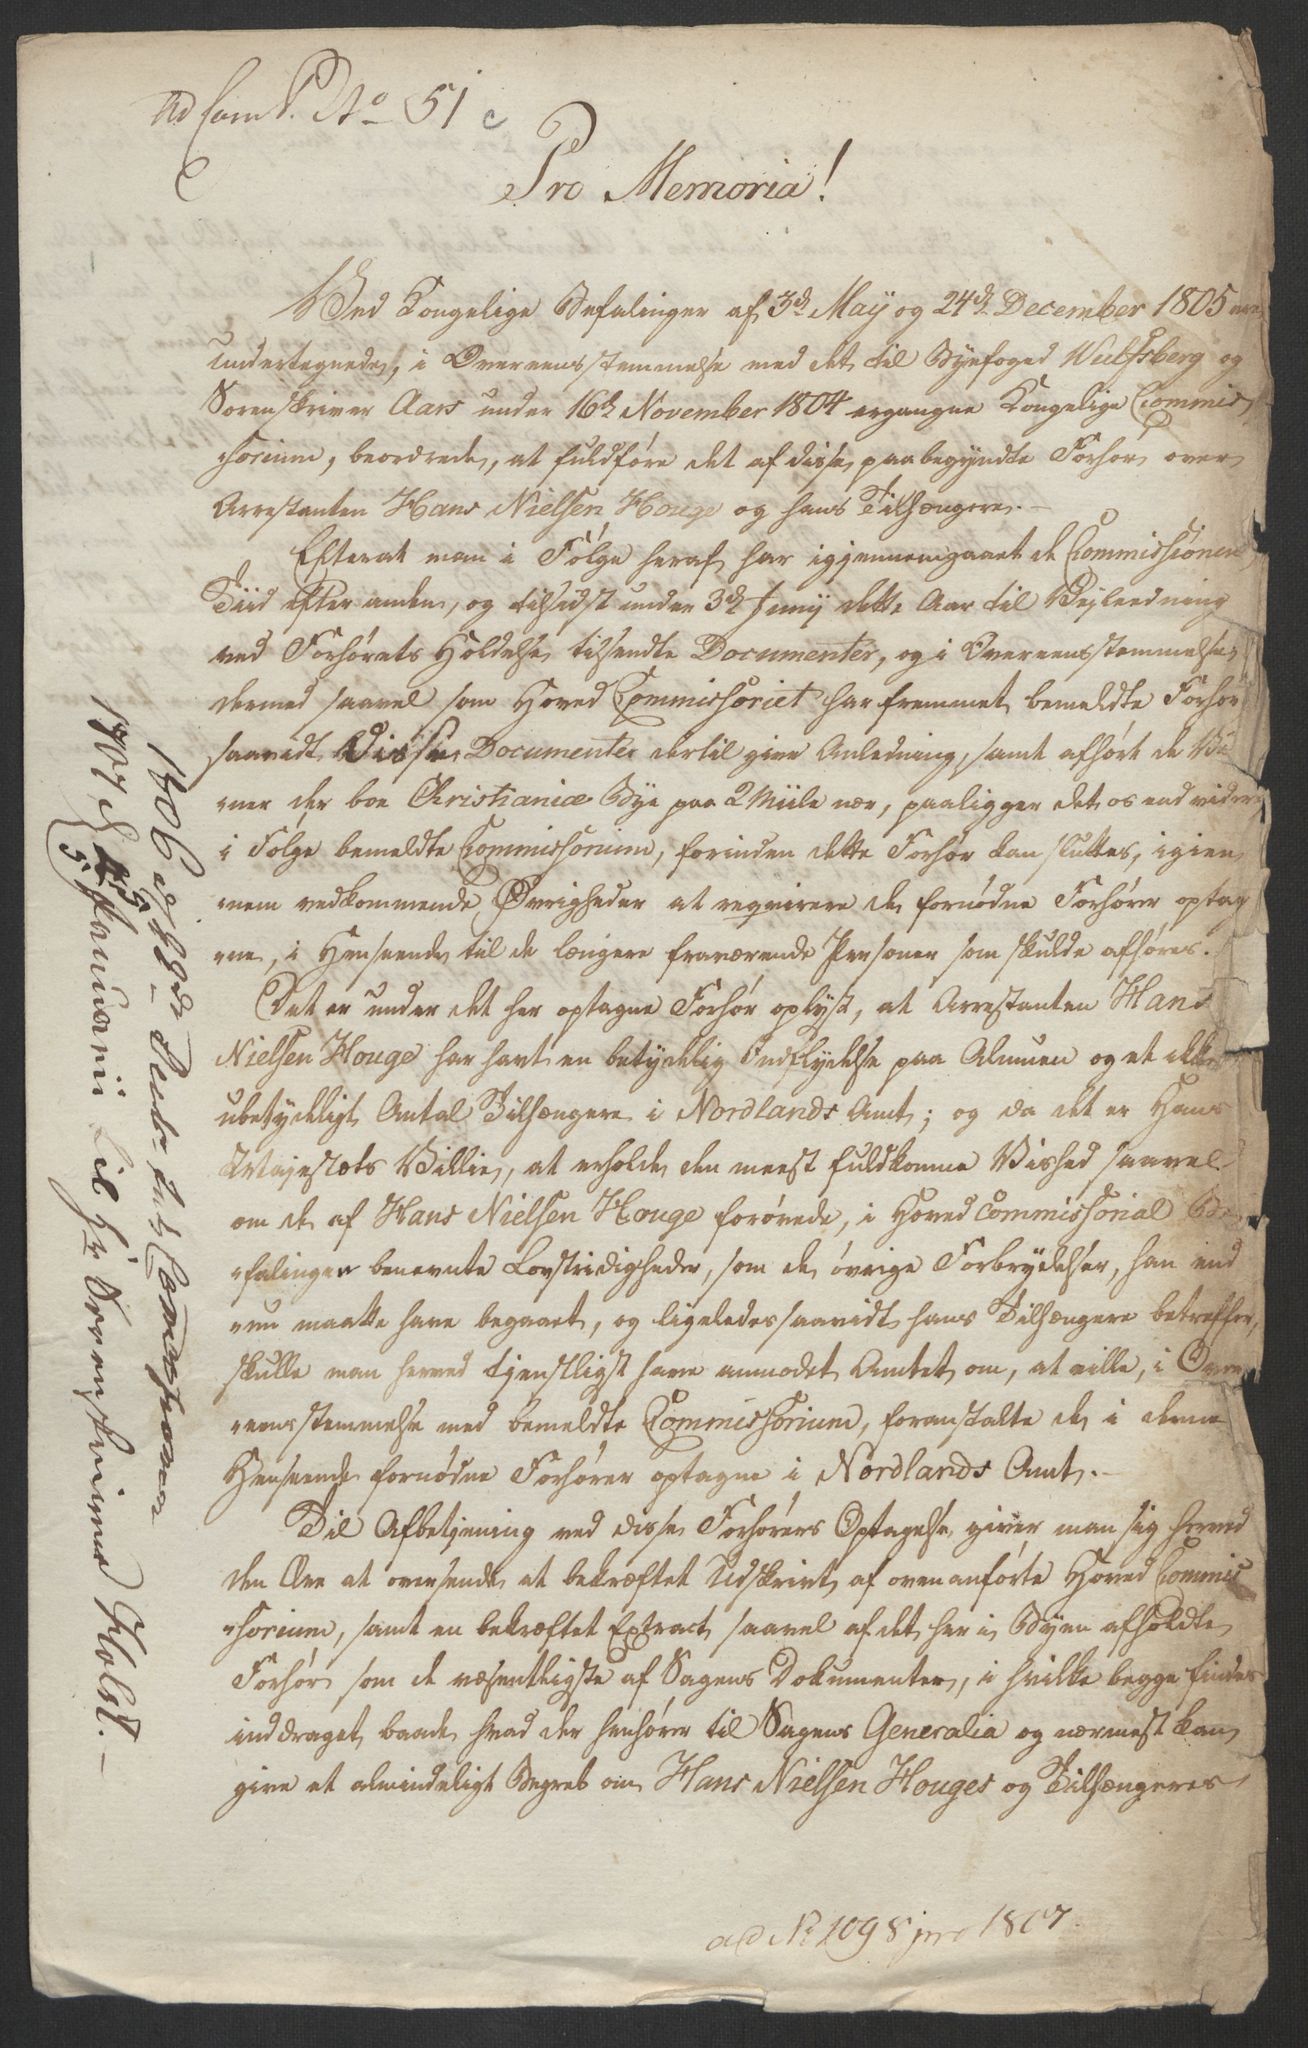 Ad Com P. No 51 c
Pro Memoria!
Ved Kongelige Befalinger af 3d May og 24d December 1805 ere
undertegnede, i Overeensstemmelse med det til Byefoged Wulfsberg og
Sorenskriver Aars under 16d November 1804 ergangne Kongelige Commis
sorium, beordrede, at fuldføre det af disse paabegyndte Forhør over
Arrestanten Hans Nielsen Houge og hans Tilhængere.-
Efterat man i Følge heraf har igjennemgaaet de Commissionen
Tiid efter anden, og tilsidst under 3d Junij dette Aar til Vejledning
ved Forhørets Holdelse tilsendte Documenter, og i Overeensstemmelse
dermed saavel som Hoved Commissoriet har fremmet bemeldte Forhør
saavidt disse Documenter dertil give Anledning, samt afhørt de
ner der boe Christianiæ Bye paa 2 Miile nær, paaligger det os end videre
i Følge bemeldte Commissorium, forinden dette Forhør kan sluttes, igien
nem vedkommende Øvrigheder at reqvirere de fornødne Forhører optag
ne, i Henseende til de længere fraværende Personer som skulde afhøres.
Det er under det her optagne Forhør oplyst, at Arrestanten Hans
Nielsen Houge har havt en betydelig Indflydelse paa Almuen og et ikke
ubetydeligt Antal Tilhængere i Nordlands Amt; og da det er Hans
Majestæts Villie, at erholde den meest fuldkomne Vished saavel
om de af Hans Nielsen Houge forøvede, i Hoved Commissorial Be
falingen benevnte Lovstridigheder, som de øvrige Forbrydelser, han end
nu maatte have begaaet, og ligeledes saavidt hans Tilhængere betreffer,
skulle man herved tjenstligst have anmodet Amtet om, at ville, i Over
eensstemmelse med bemeldte Commissorium, foranstalte de i denne
Henseende fornødne Forhører optagne i Nordlands Amt.-
Til Afbetjening ved disse Forhørers Optagelse giver man sig herved
den Ære at oversende et bekræftet Udskrivt af ovenanførte Hoved Commis
sorium, samt en bekræftet Extract saavel af det her i Byen afholdte
Forhør som de væsentligste af Sagens Dokumenter, i hvilke begge findes
inddraget baade hvad der henhører til Sagens Generalia og nærmest kan
give et almindeligt Begreb om Hans Nielsen Houges og Tilhængeres
ad No 1098 1807.
1806 d
1807 d 5 Januarii til Hr Sorenskriver Holst.-